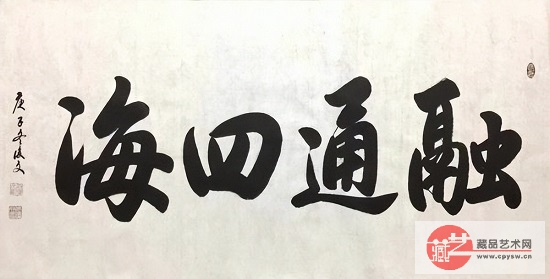 融通四海
庚子冬文
藏艺
藏品艺术网
www.cpysw.cn